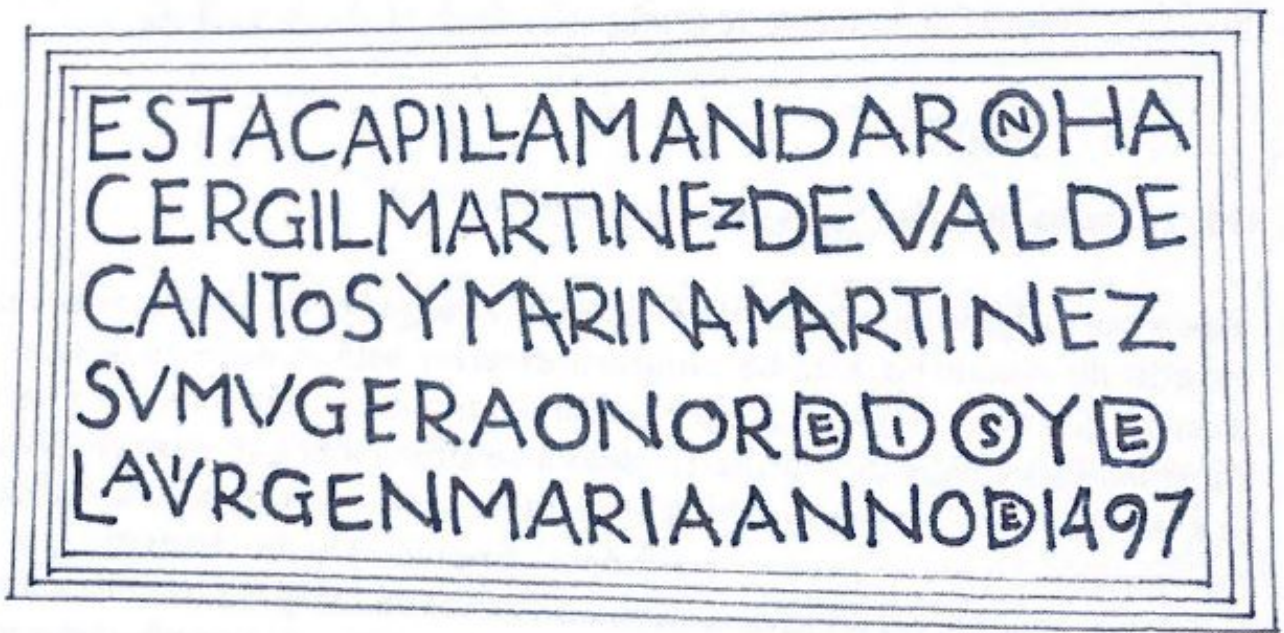 ESTACAPILLAMANDARONHA
CERGILMARTINEZDEVALDE
CANTOSYMARINAMARTINEZ
SVMVGERAONORDEDIOSYDE
LAVIRGENMARIAANNODE1497